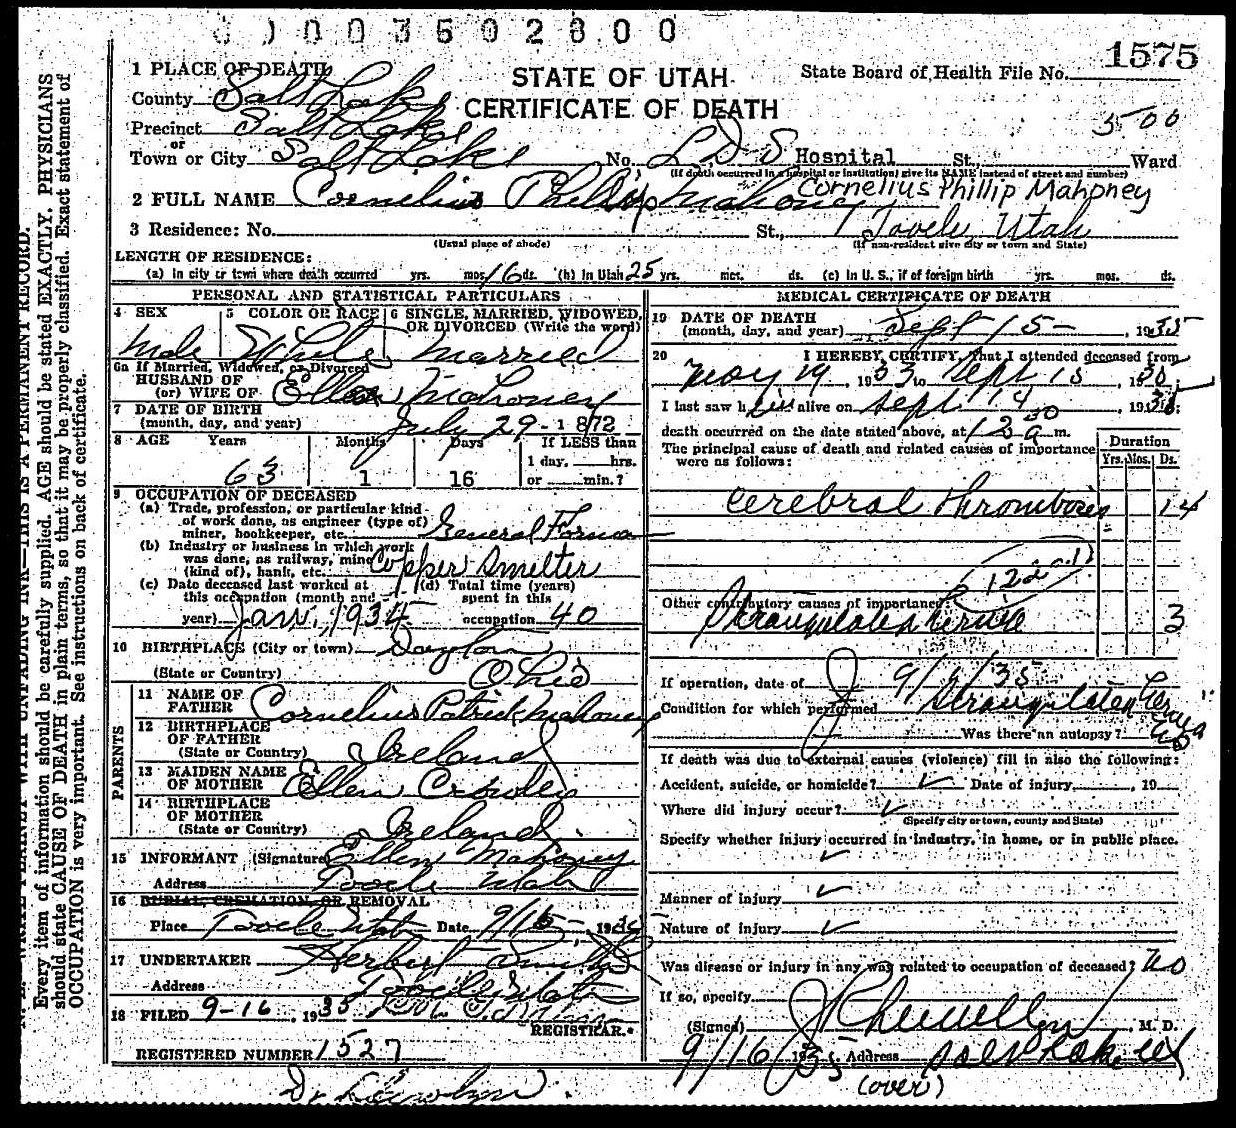 0 0 3 5 0 2 8 0 0
1575
STATE OF UTAH
CERTIFICATE OF DEATH
State Board of Health File No.
3500
1 PLACE OF DEATH
County Salt Lake
Precinct Salt Lake
or
Town or City Salt Lake No. L D S Hospital St., Ward
(If death occurred in a hospital or institution, give its NAME instead of street and number)
Cornelius Phillip Mahoney
2 FULL NAME Cornelius Phillip Mahoney
3 Residence: No. St., Tooele, Utah
(Usual place of abode) (If non-resident give city or town and State)
LENGTH OF RESIDENCE:
(a) In city or town where death occurred yrs. mos. 16 ds. (b) In Utah 25 yrs. mos. ds. (c) In U. S., if of foreign birth yrs. mos. ds.
PERSONAL AND STATISTICAL PARTICULARS
4 SEX 5 COLOR OR RACE 6 SINGLE, MARRIED, WIDOWED, OR DIVORCED (Write the word)
Male White Married
6a If Married, Widowed, or Divorced
HUSBAND OF
(or) WIFE OF Ellen Mahoney
7 DATE OF BIRTH
(month, day, and year) July 29 - 1872
8 AGE Years Months Days If LESS than
63 1 16 1 day, hrs.
or min.?
9 OCCUPATION OF DECEASED
(a) Trade, profession, or particular kind
of work done, as engineer (type of)
miner, bookkeeper, etc. General Foreman
(b) Industry or business in which work
was done, as railway, mine
(kind of), bank, etc. Copper Smelter
(c) Date deceased last worked at (d) Total time (years)
this occupation (month and spent in this
year) Jan., 1934 occupation 40
10 BIRTHPLACE (City or town) Dayton
(State or Country) Ohio
PARENTS
11 NAME OF
FATHER Cornelius Patrick Mahoney
12 BIRTHPLACE
OF FATHER
(State or Country) Ireland
13 MAIDEN NAME
OF MOTHER Ellen
14 BIRTHPLACE
OF MOTHER
(State or Country) Ireland
15 INFORMANT (Signature) Ellen Mahoney
Address Tooele Utah
16 BURIAL, CREMATION, OR REMOVAL
Place Tooele Utah Date 9/16 1935
17 UNDERTAKER Herbert
Address Tooele, Utah
18 FILED 9-16, 1935
REGISTRAR.
REGISTERED NUMBER 1527
MEDICAL CERTIFICATE OF DEATH
19 DATE OF DEATH
(month, day, and year) Sept 15 - , 1935
20 I HEREBY CERTIFY, That I attended deceased from
May 19, 1933 to Sept 15, 1935
I last saw him alive on Sept. 14, 1935;
death occurred on the date stated above, at 12 30 a m.
The principal cause of death and related causes of importance
were as follows:
Duration
Yrs. Mos. Ds.
Cerebral Thrombosis 14
122
Other contributory causes of importance:
Strangulated hernia 3
If operation, date of 9/1/35
Condition for which performed Strangulated hernia
Was there an autopsy? no
If death was due to external causes (violence) fill in also the following:
Accident, suicide, or homicide? ✓ Date of injury , 19
Where did injury occur? ✓
(Specify city or town, county and State)
Specify whether injury occurred in industry, in home, or in public place.
✓
Manner of injury ✓
Nature of injury ✓
Was disease or injury in any way related to occupation of deceased? no
If so, specify
(Signed) J Llewellyn, M. D.
9/16 1935 Address Salt Lake Ut
(over)
Dr Llewelyn.
WRITE PLAINLY WITH UNFADING INK—THIS IS A PERMANENT RECORD.
Every item of information should be carefully supplied. AGE should be stated EXACTLY. PHYSICIANS
should state CAUSE OF DEATH in plain terms, so that it may be properly classified. Exact statement of
OCCUPATION is very important. See instructions on back of certificate.